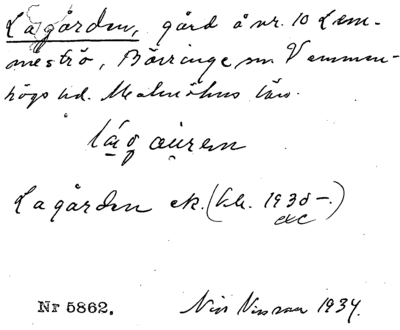 Lagården, gård å nr. 10 Lem-
meströ, Börringe sn. Vemmen-
högs hd. Malmöhus län.
lág
Lagården ek. (Kbl. 1930-.)
Nr 5862. Nils Nilsson 1934.